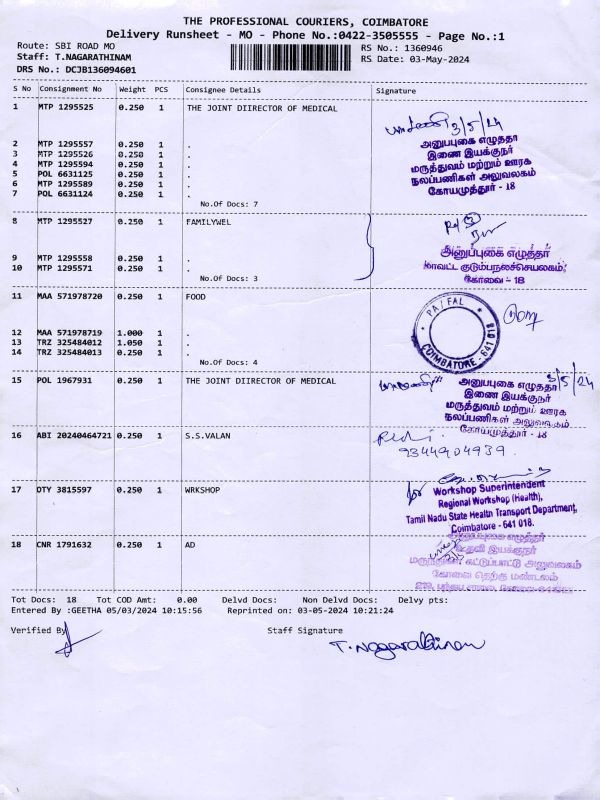 THE PROFESSIONAL COURIERS, COIMBATORE
Delivery Runsheet - MO - Phone No.:0422-3505555 - Page No.:1
Route: SBI ROAD MO
RS No.: 1360946
Staff: T.NAGARATHINAM
RS Date: 03-May-2024
DRS No.: DCJB136094601
S No Consignment No Weight PCS Consignee Details Signature
1 MTP 1295525 0.250 1 THE JOINT DIIRECTOR OF MEDICAL
3/5/24
அனுப்புகை எழுத்தர்
2 MTP 1295557 0.250 1 .
இணை இயக்குநர்
3 MTP 1295526 0.250 1 .
மருத்துவம் மற்றும் ஊரக
4 MTP 1295594 0.250 1 .
நலப்பணிகள் அலுவலகம்
5 POL 6631125 0.250 1 .
கோயமுத்தூர் - 18
6 MTP 1295589 0.250 1 .
7 POL 6631124 0.250 1 .
No.Of Docs: 7
8 MTP 1295527 0.250 1 FAMILYWEL
அனுப்புகை எழுத்தர்
9 MTP 1295558 0.250 1 .
மாவட்ட குடும்பநலச்செயலகம்,
10 MTP 1295571 0.250 1 .
கோவை - 18
No.Of Docs: 3
11 MAA 571978720 0.250 1 FOOD
12 MAA 571978719 1.000 1 .
13 TRZ 325484012 1.050 1 .
14 TRZ 325484013 0.250 1 .
No.Of Docs: 4
COIMBATORE - 641 018
15 POL 1967931 0.250 1 THE JOINT DIIRECTOR OF MEDICAL
3/5/24
அனுப்புகை எழுத்தர்
இணை இயக்குநர்
மருத்துவம் மற்றும் ஊரக
நலப்பணிகள் அலுவலகம்
கோயமுத்தூர் - 18
16 ABI 20240464721 0.250 1 S.S.VALAN
9344904939
17 DTY 3815597 0.250 1 WRKSHOP
Workshop Superintendent
Regional Workshop (Health),
Tamil Nadu State Health Transport Department,
Coimbatore - 641 018.
18 CNR 1791632 0.250 1 AD
அனுப்புகை எழுத்தர்
உதவி இயக்குநர்
கோவை தெற்கு மண்டலம்
Tot Docs: 18 Tot COD Amt: 0.00 Delvd Docs: Non Delvd Docs: Delvy pts:
Entered By :GEETHA 05/03/2024 10:15:56 Reprinted on: 03-05-2024 10:21:24
Verified By
Staff Signature
T. Nagarathinam